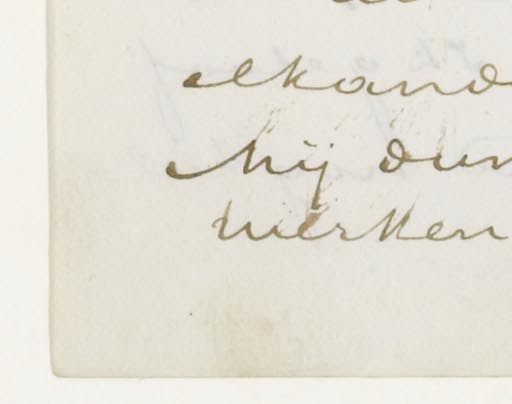 elkand
Mij dun
werken